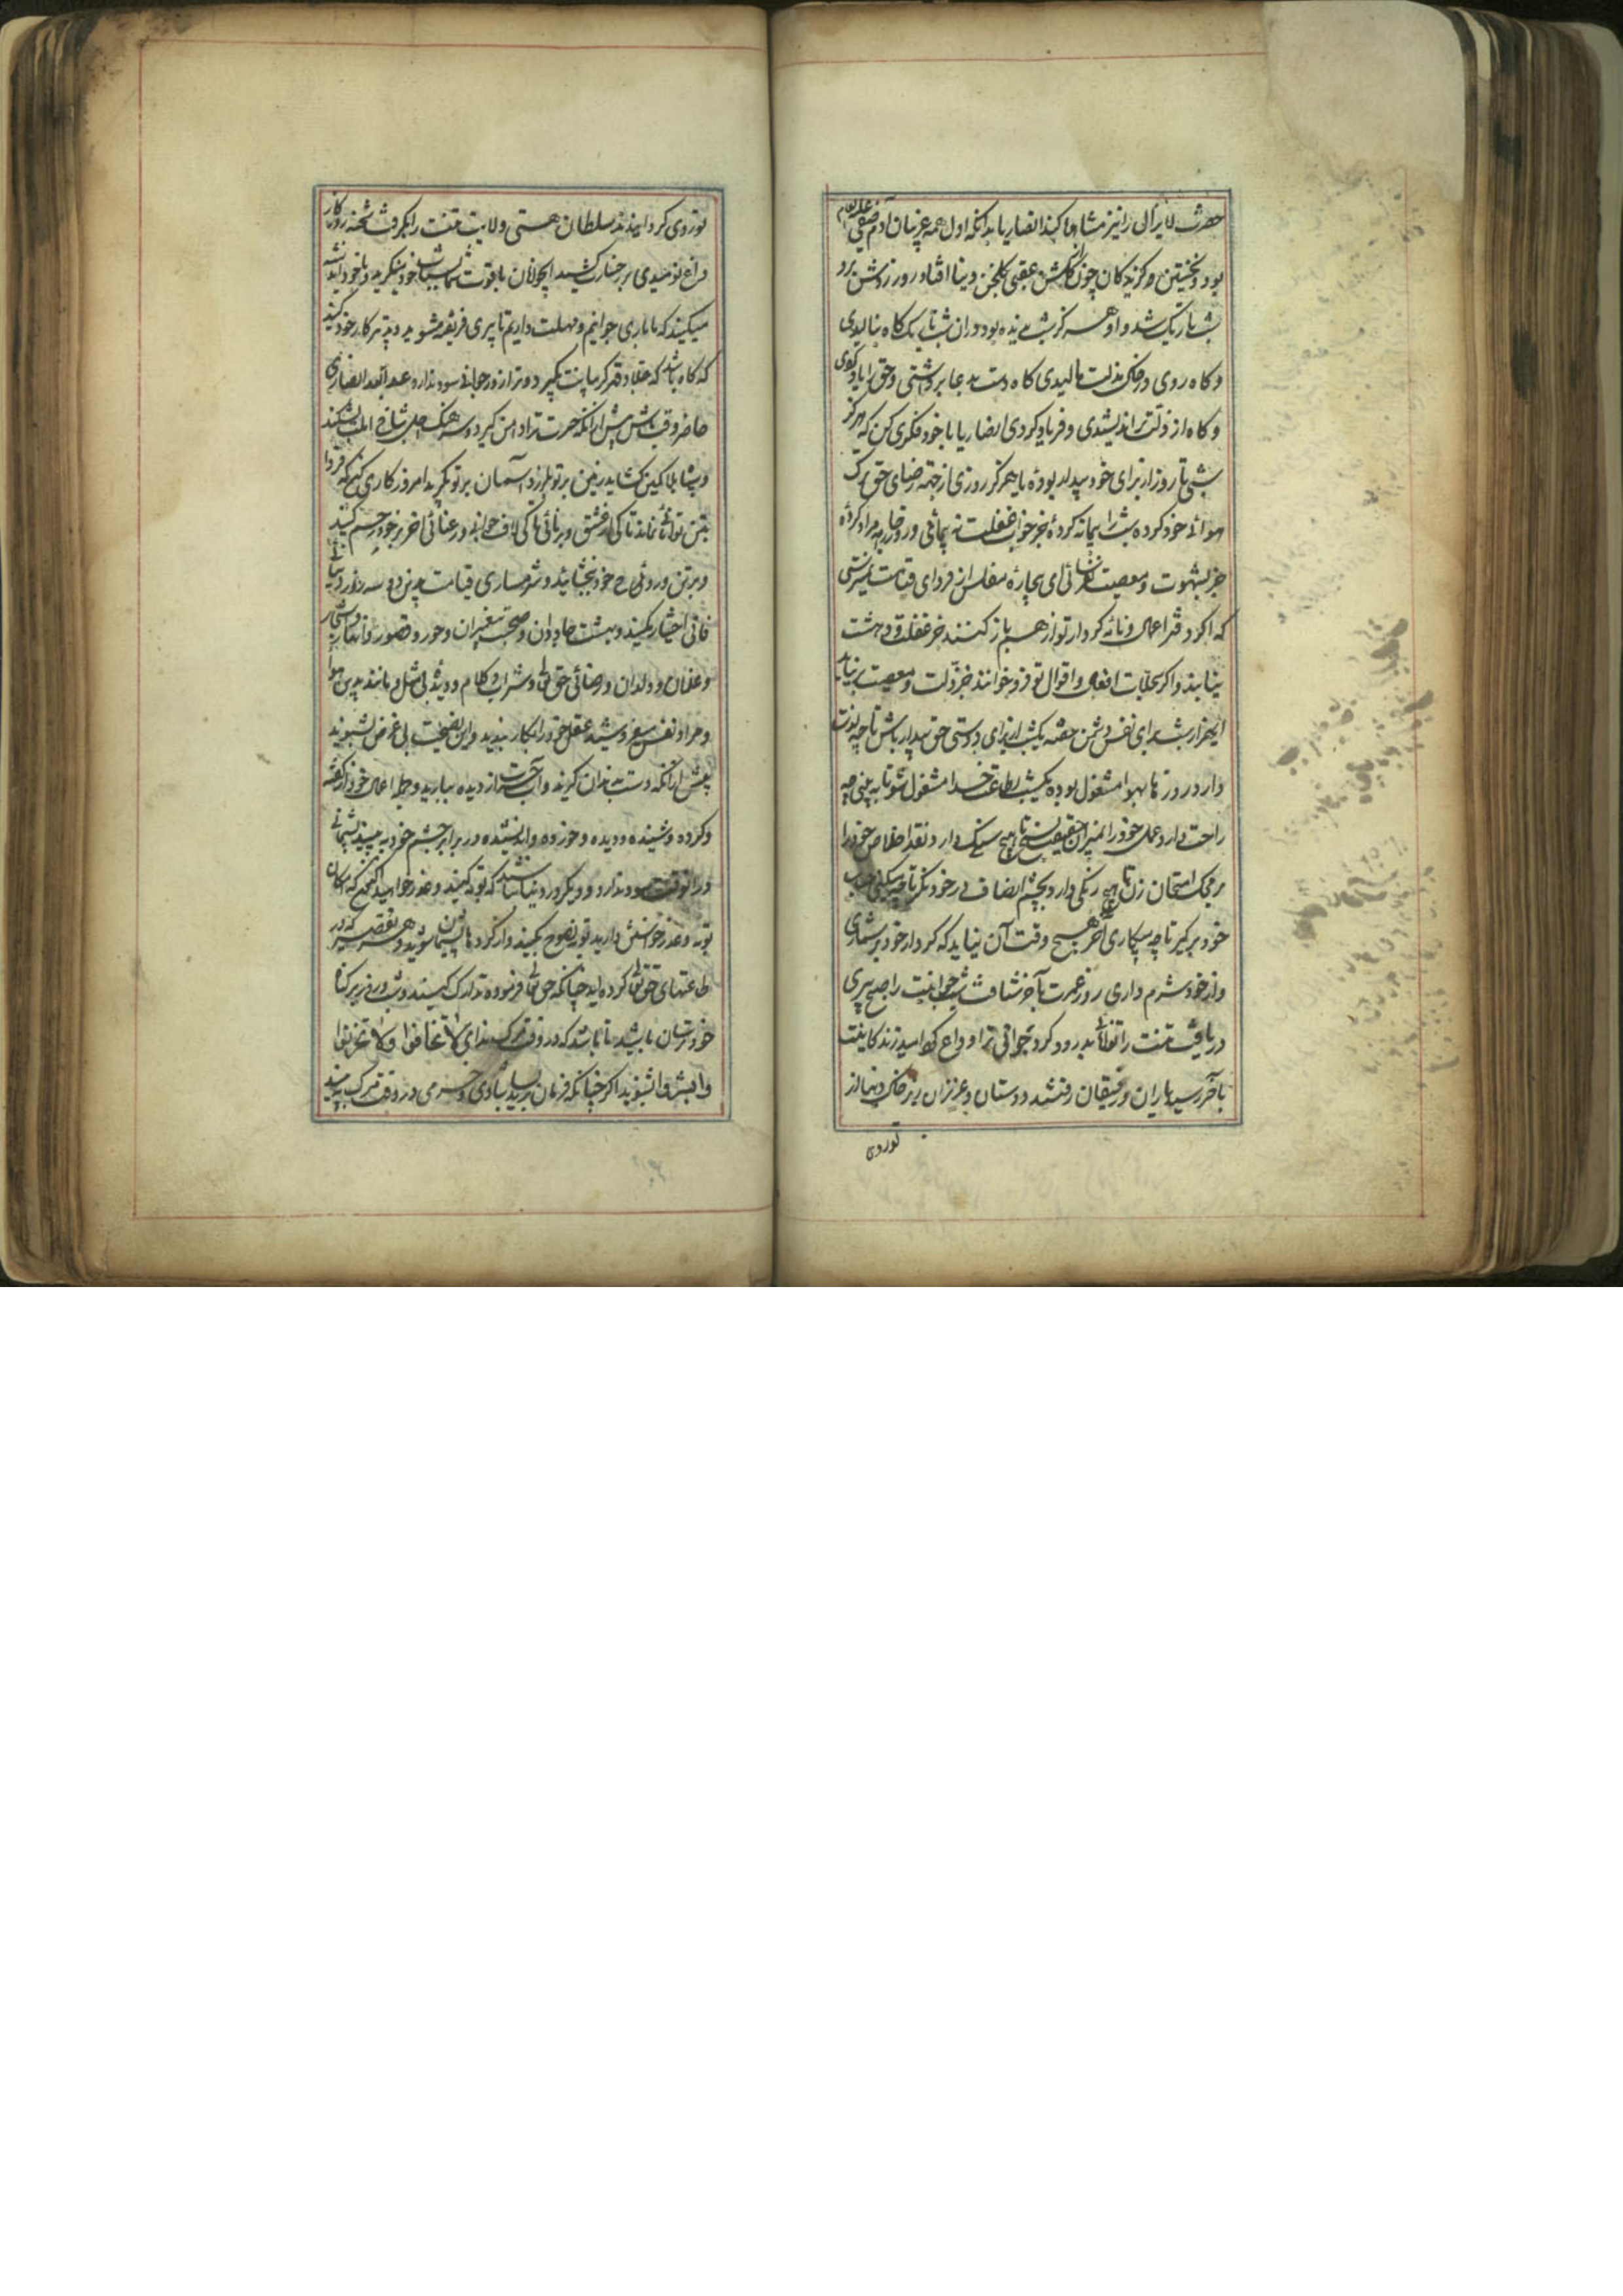 حضرت لایزال را نیز مشاهده کنید انصاریا بدانکه اول همه غریبان آدم صفی علیه السلام
بود و نخستین هر گزیدکان چون از کلشن عقبی بکلخن دنیا افتاد روز روشن برو
شب تاریک شد و او هرگز شب ندیده بود در آن شب تاریک گاه بنالیدی
و کاه روی در خاک مذلت مالیدی کاه دست بدعا برداشتی و حق را یاد کردی
و کاه از زلت تر اندیشیدی و فریاد کردی انصاریا با خود فکری کن که هرگز
شبی تا روز از برای خود بیدار بوده یا هرگز روزی از جهة رضای حق ترک
هوائے خود کرده شب را بیمانه کردهٔ جز خواب غفلت نه پیمائی و روز را
جز بشهوت و معصیت ای بیچارهٔ مفلس از فردای قیامت
که اگر دفتر اعمال و نامه کردار تو از هم باز کنند جز غفلت و دهشت
نیابند و اکر سجلات افعال و اقوال تو فرو خوانند جز زلت و معصیت بر نیاید
ای هزار شب برای نفس دشمن خفته یکشب از برای دوستی حق بیدار باش تا چه
دارد روزها بهوا مشغول بوده یکشب بطاعت خدا مشغول شو تا به بینی چه
راحت دارد عمل خود را بمیزان حقیقت بسنج تا هیچ سنگ دارد و نقد اخلاص خود را
بر محک امتحان زن تا هیچ رنگی دارد بچشم انصاف در خود نگر تا چه میکنی حساب
خود بر کیر تا چه میکاری آخر هیچ وقت آن نیاید که کردار خود بر شماری
و از خود شرم داری روز عمرت بآخر شتافت شب جوانیت را صبح پیری
دریافت تنت را توانائی بدرود کرد جوانی ترا وداع کرد امید زندگانیت
بآخر رسید یاران و رفیقان رفتند دوستان و عزیزان زیر خاک دنیا از
تو روی
تو روی کردانیدند سلطان هستی ولایت تنت را بگرفت شحنه روزکار
داغ نومیدی بر رخسارت کشید ای جوانان با قوت شما بشباب خود بنگرید و با خود اندیشه
میکنید که ما باری جوانیم و مهلت داریم تا پیری فریفته مشوید و تدبیر کار خود کنید
که گاه باشد که جلاد قهر کریبانت بگیرد و تراز و رجوانی سود ندارد عبد الله انصاری
حاضر وقت باش پیش از آنکه حسرت ترا دامن گیرد و سرهنگ اجل
و کمین کشاید زمین بر تو بلرزد و آسمان بر تو بگرید امروز کاری کن که فردا
بتن توانائی نماند تا کی از عشق و برنائی تا کی لاف جوانی و رعنائی آخر بر خود رحم کنید
و بر تن و روئی خود بخشائید و شرمساری قیامت بدین دو سه روزه دنیائے
فانی اختیار مکنید و بهشت جاودان و صحبت پیغمبران و حور و قصور و انهار و اشجار
و غلمان و ولدان و رضائی حق تعالی و شراب و کلام و دیدار بی مثل و مانند بدین هوا
و مراد نفس مفروشید عقل خود را بکار بندید و این نصیحت بی غرض بشنوید
پیش از آنکه دست بدندان گزید و آب حسرت از دیده ببارید و جمله اعمال خود از گفته
و کرده و شنیده و دیده و خورده و اندیشیده در برابر چشم خود به بینید پشیمانے
در آنوقت سود ندارد و دیگر در دنیا نباشید که توبه کنید و عذر خواهید اکنون که امکان
توبه و عذر خواستن دارید توبه نصوح بکنید و از کردها پشیمان شوید و هر تقصیر که در
طاعتهای حق تعالی کرده اید چنانکه حق تعالی فرموده تدارک کنید و شب و روز بر کناه
خود ترسان باشید تا باشد که در وقت مرگ ندای لا تخافوا ولا تحزنوا
وابشروا بشنوید اگر چنانکه فرمان برید بسا شادی و خرمی در وقت مرگ بینید